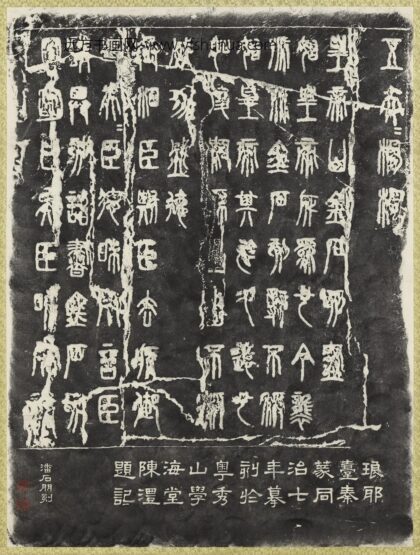 五夫楊樛
皇帝曰金石刻盡
始皇帝所為也今襲
號而金石刻辭不稱
始皇帝其於久遠也
如後嗣為之者不稱
成功盛德
丞相臣斯臣去疾御
史夫臣德昧死言臣
請具刻詔書金石刻
因明白矣臣昧死請
琅邪
臺秦
篆同
治十
年摹
刻於
粵秀
山學
海堂
陳澧
題記
潘石朋刻